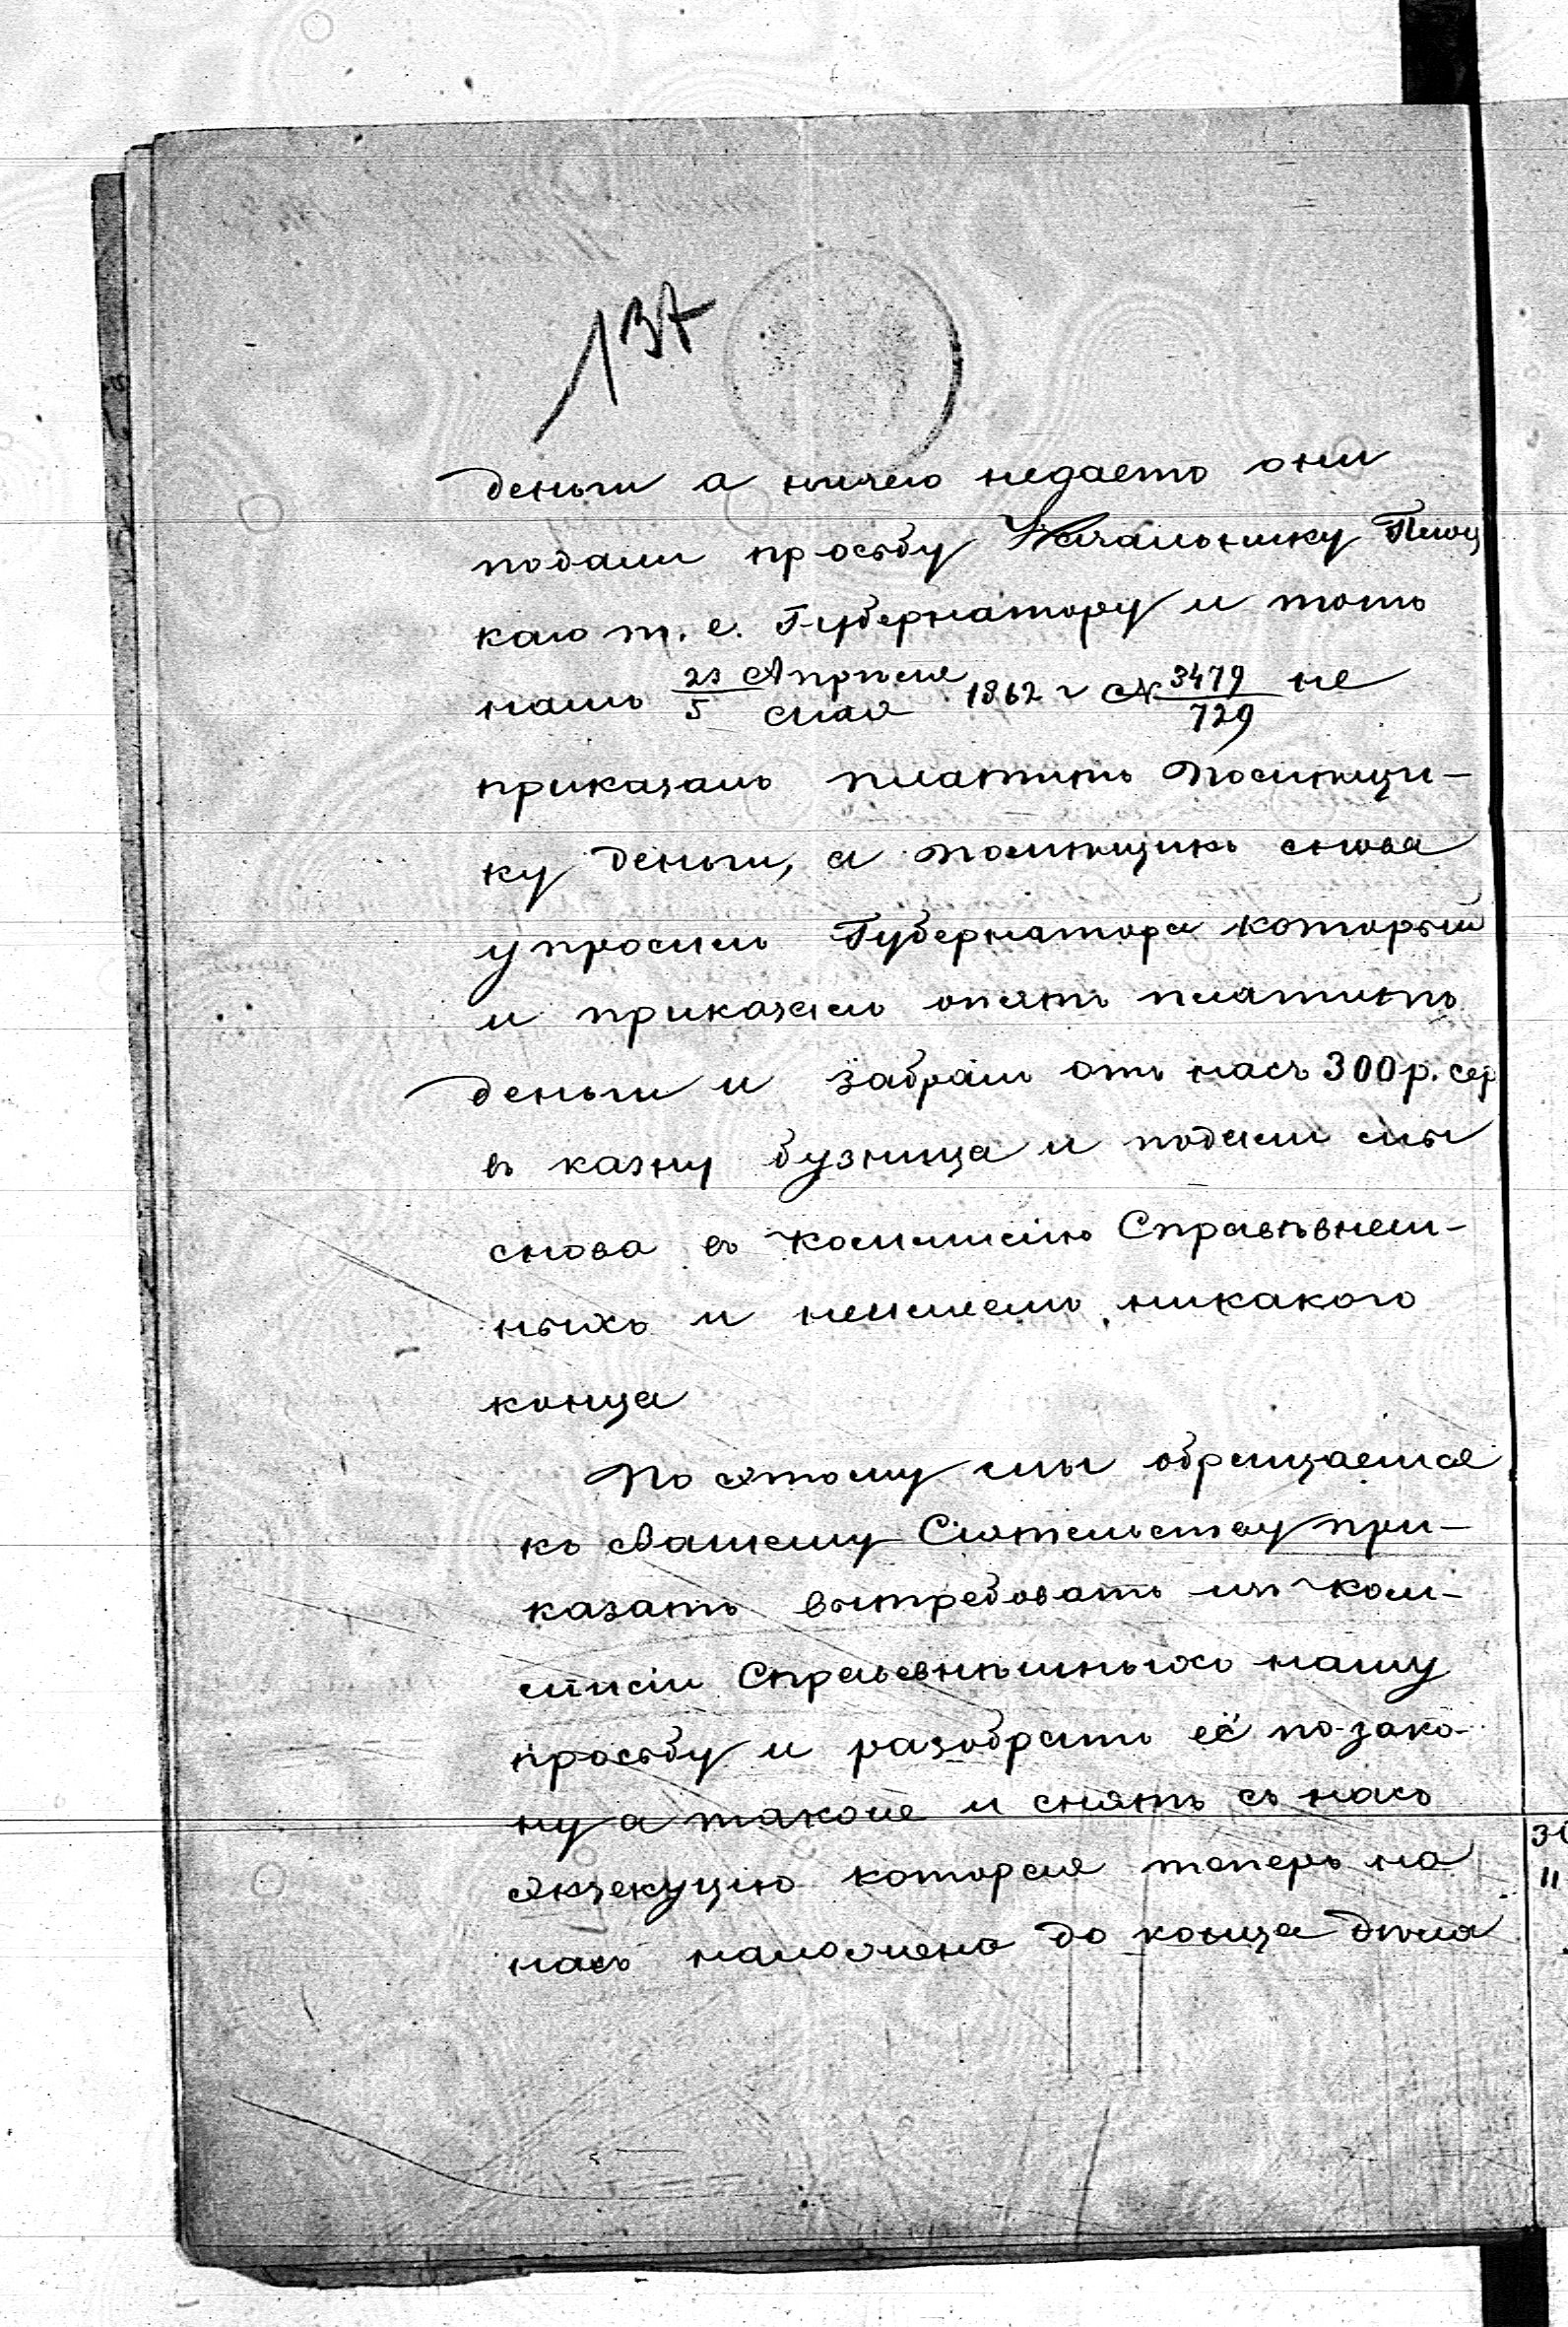 137
деньги а ничего недаетъ они
подали просьбу Начальнику Плоц
каго т. е. Губернатору и тотъ
намъ 23 Апрѣля/5 мая 1862 г № 3479/729 не
приказалъ платить помѣщи-
ку деньги, а помѣщикъ снова
упросилъ Губернатора который
и приказалъ опять платить
деньги и забралъ отъ насъ 300 р. сер
въ казну бузница и подали мы
снова въ коммисію Справѣвнеш-
ныхъ и неимеемъ никакого
конца
По этому мы обращаемся
къ Вашему Сіятельству при-
казать вытребовать изъ ком-
мисіи Справевнѣшныхъ нашу
просьбу и разобрать её по зако-
ну а также и снять съ насъ
экзекуцію которая теперь на
насъ наложена до конца дѣла